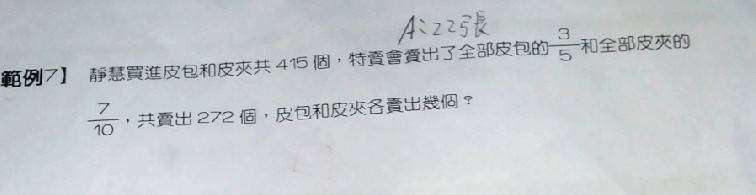 A:225張
範例7】 靜慧買進皮包和皮夾共 415 個，特賣會賣出了全部皮包的 3/5 和全部皮夾的
7/10，共賣出 272 個，皮包和皮夾各賣出幾個？